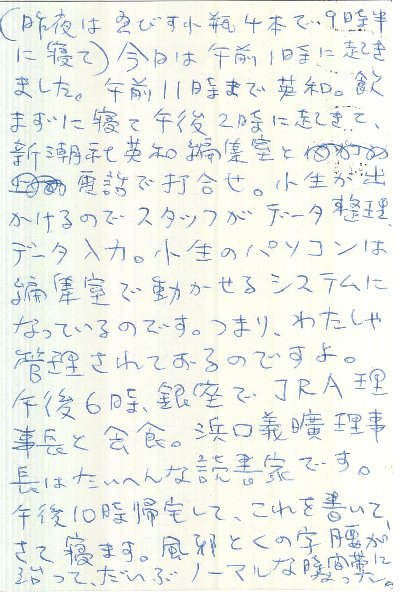 (昨夜はヱびす小瓶4本で、9時半
に寝て)今日は午前1時に起き
ました。午前11時まで英和。飲
まずに寝て午後2時に起きて、
新潮社英和編集室と
電話で打合せ。小生が出
かけるのでスタッフがデータ整理、
データ入力。小生のパソコンは
編集室で動かせるシステムに
なっているのです。つまり、わたしゃ
管理されておるのですよ。
午後6時、銀座でJRA理
事長と会食。浜口義曠理事
長はたいへんな読書家です。
午後10時帰宅して、これを書いて、
さて寝ます。風邪とくの字腰が
治って、だいぶノーマルな時間帯に
なった。